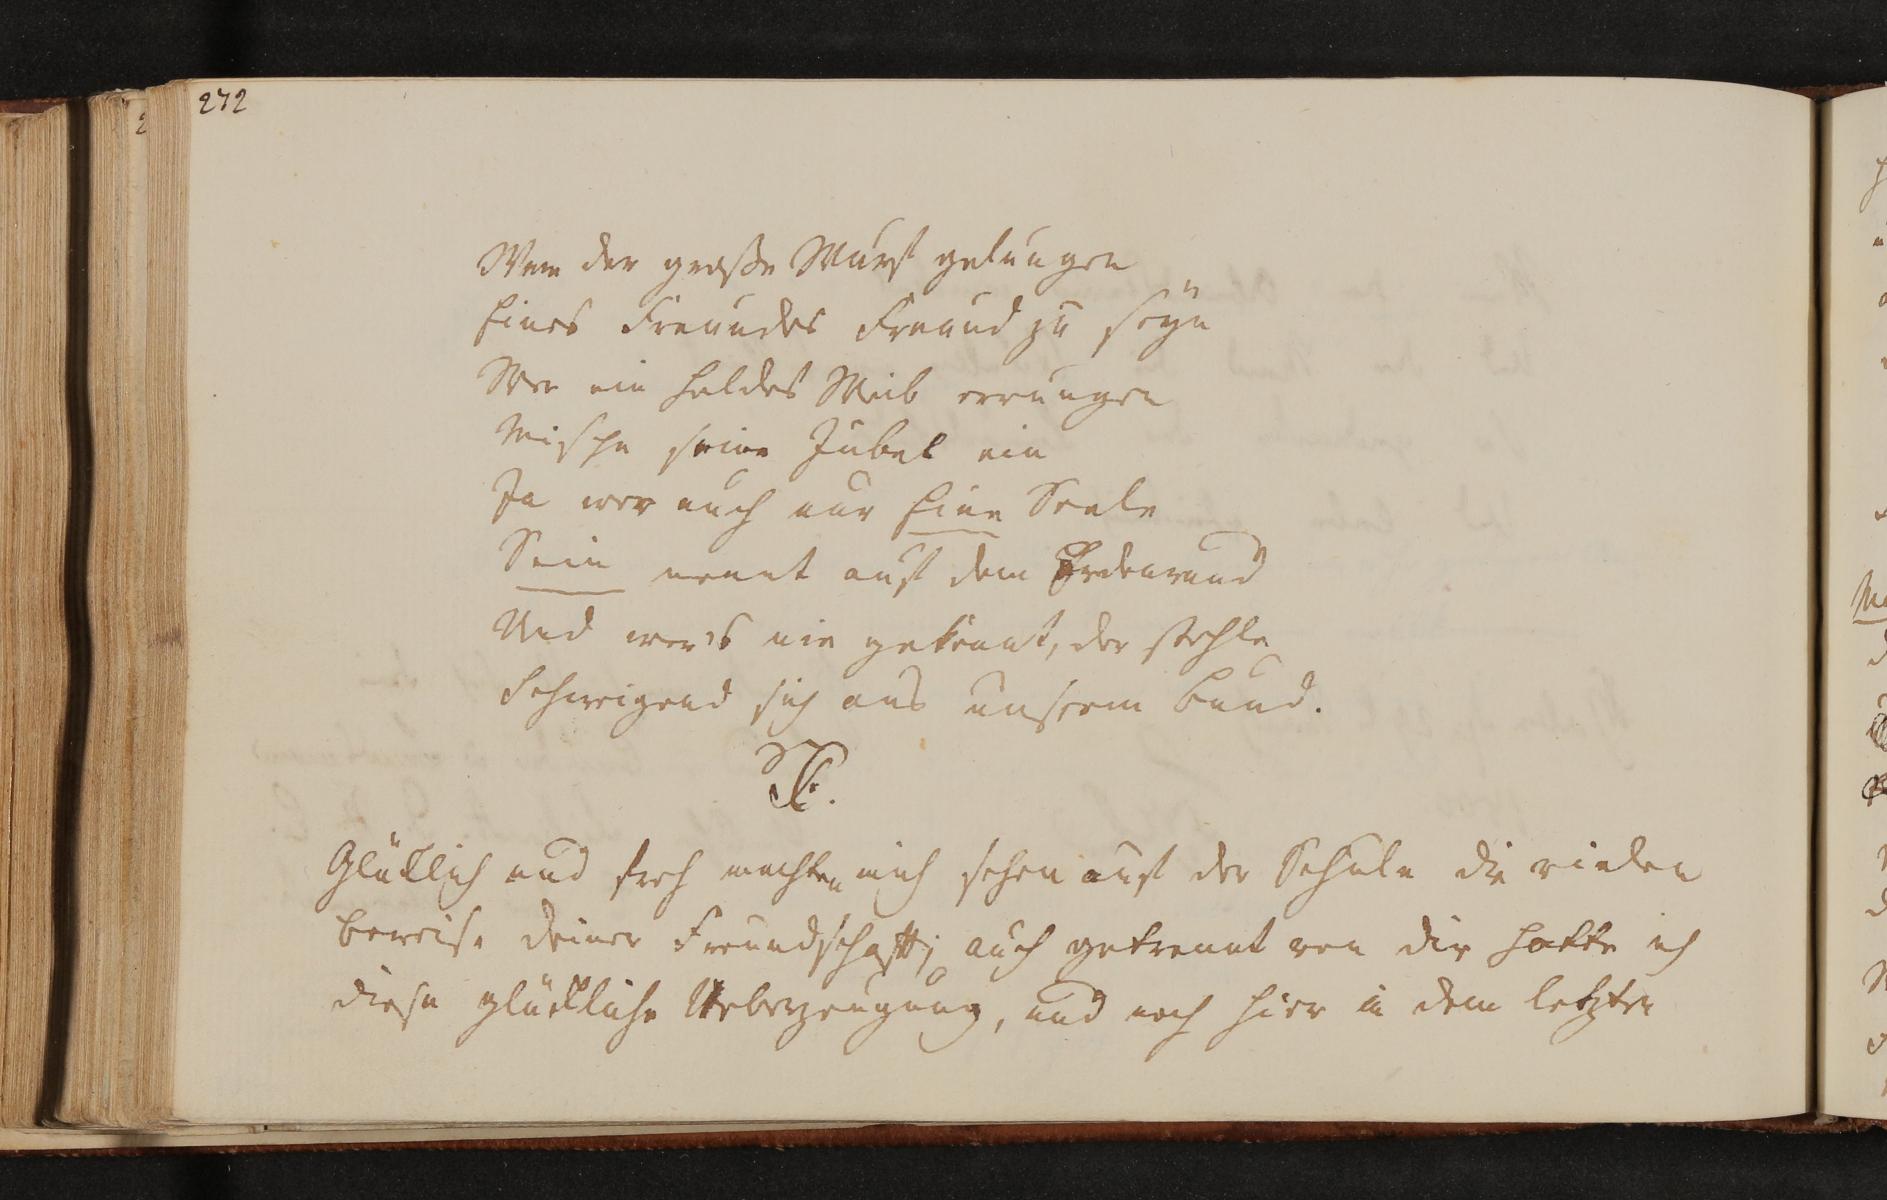 272
Wem der große Wurf gelungen
Eines Freundes Freund zu seÿn
Wer ein holdes Weib errungen
Mische seine Jubel ein
Ja wer auch nur Eine Seele
Sein nennt auf dem Erdenrund
Und wer's nie gekonnt, der stehle
Schweigend sich aus unserm Bund.
Glüklich und froh machten mich schon auf der Schule die vielen
Beweise deiner Freundschaft; auch getrennt von dir hatte ich
diese glückliche Ueberzeugung, und noch hier in dem letzten